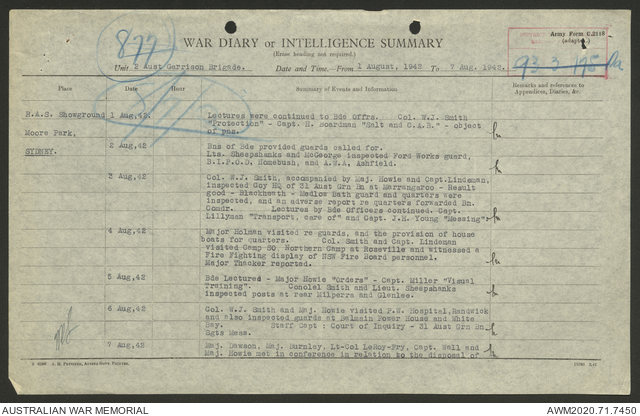 877
WAR DIARY or INTELLIGENCE SUMMARY
(Erase heading not required.)
Army Form C.2118
(adapted.)
Unit 2 Aust Garrison Brigade. Date and Time—From 1 August, 1942 To 7 Aug. 1942.
Place Date Hour Summary of Events and Information Remarks and references to
Appendices, Diaries, &c.
R.A.S. Showground 1 Aug,42. Lectures were continued to Bde Offrs. Col. W.J. Smith
"Protection" - Capt. H. Boardman "Salt and C.A.B." - object
Moore Park, of pas.
SYDNEY. 2 Aug,42 Bns of Bde provided guards called for.
Lts. Sheepshanks and McGeorge inspected Ford Works guard,
Homebush, and A.W.A, Ashfield.
3 Aug,42 Col. W.J. Smith, accompanied by Maj. Howie and Capt.Lindeman,
inspected Coy HQ of 31 Aust Grn Bn at Marrangaroo - Result
good - Blackheath - Medlow Bath guard and quarters were
inspected, and an adverse report re quarters forwarded Bn.
Comdr. Lectures by Bde Officers continued. Capt.
Lillyman "Transport, care of" and Capt. J.H. Young "Messing"
4 Aug,42 Major Holman visited re guards, and the provision of house
boats for quarters. Col. Smith and Capt. Lindeman
visited Camp SO Northern Camp at Roseville and witnessed a
Fire Fighting display of NSW Fire Board personnel.
Major Thacker reported.
5 Aug,42 Bde Lectures - Major Howie "Orders" - Capt. Miller "Visual
Training". Conolel Smith and Lieut. Sheepshanks
inspected posts at rear Milperra and Glenlee.
6 Aug,42 Col. W.J. Smith and Maj. Howie visited P.W. Hospital, Randwick
and also inspected guards at Balmain Power House and White
Bay. Staff Capt : Court of Inquiry - 31 Aust Grn Bn
Sgts Mess.
7 Aug,42 Maj. Dawson, Maj. Burnley, Lt-Col LeRoy-Fry, Capt. Wall and
Maj. Howie met in conference in relation to the disposal of
AUSTRALIAN WAR MEMORIAL AWM2020.71.7450